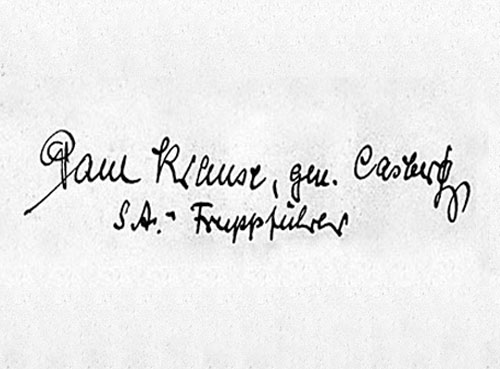 Paul Krause, gen. Casberg
S.A.- Truppführer